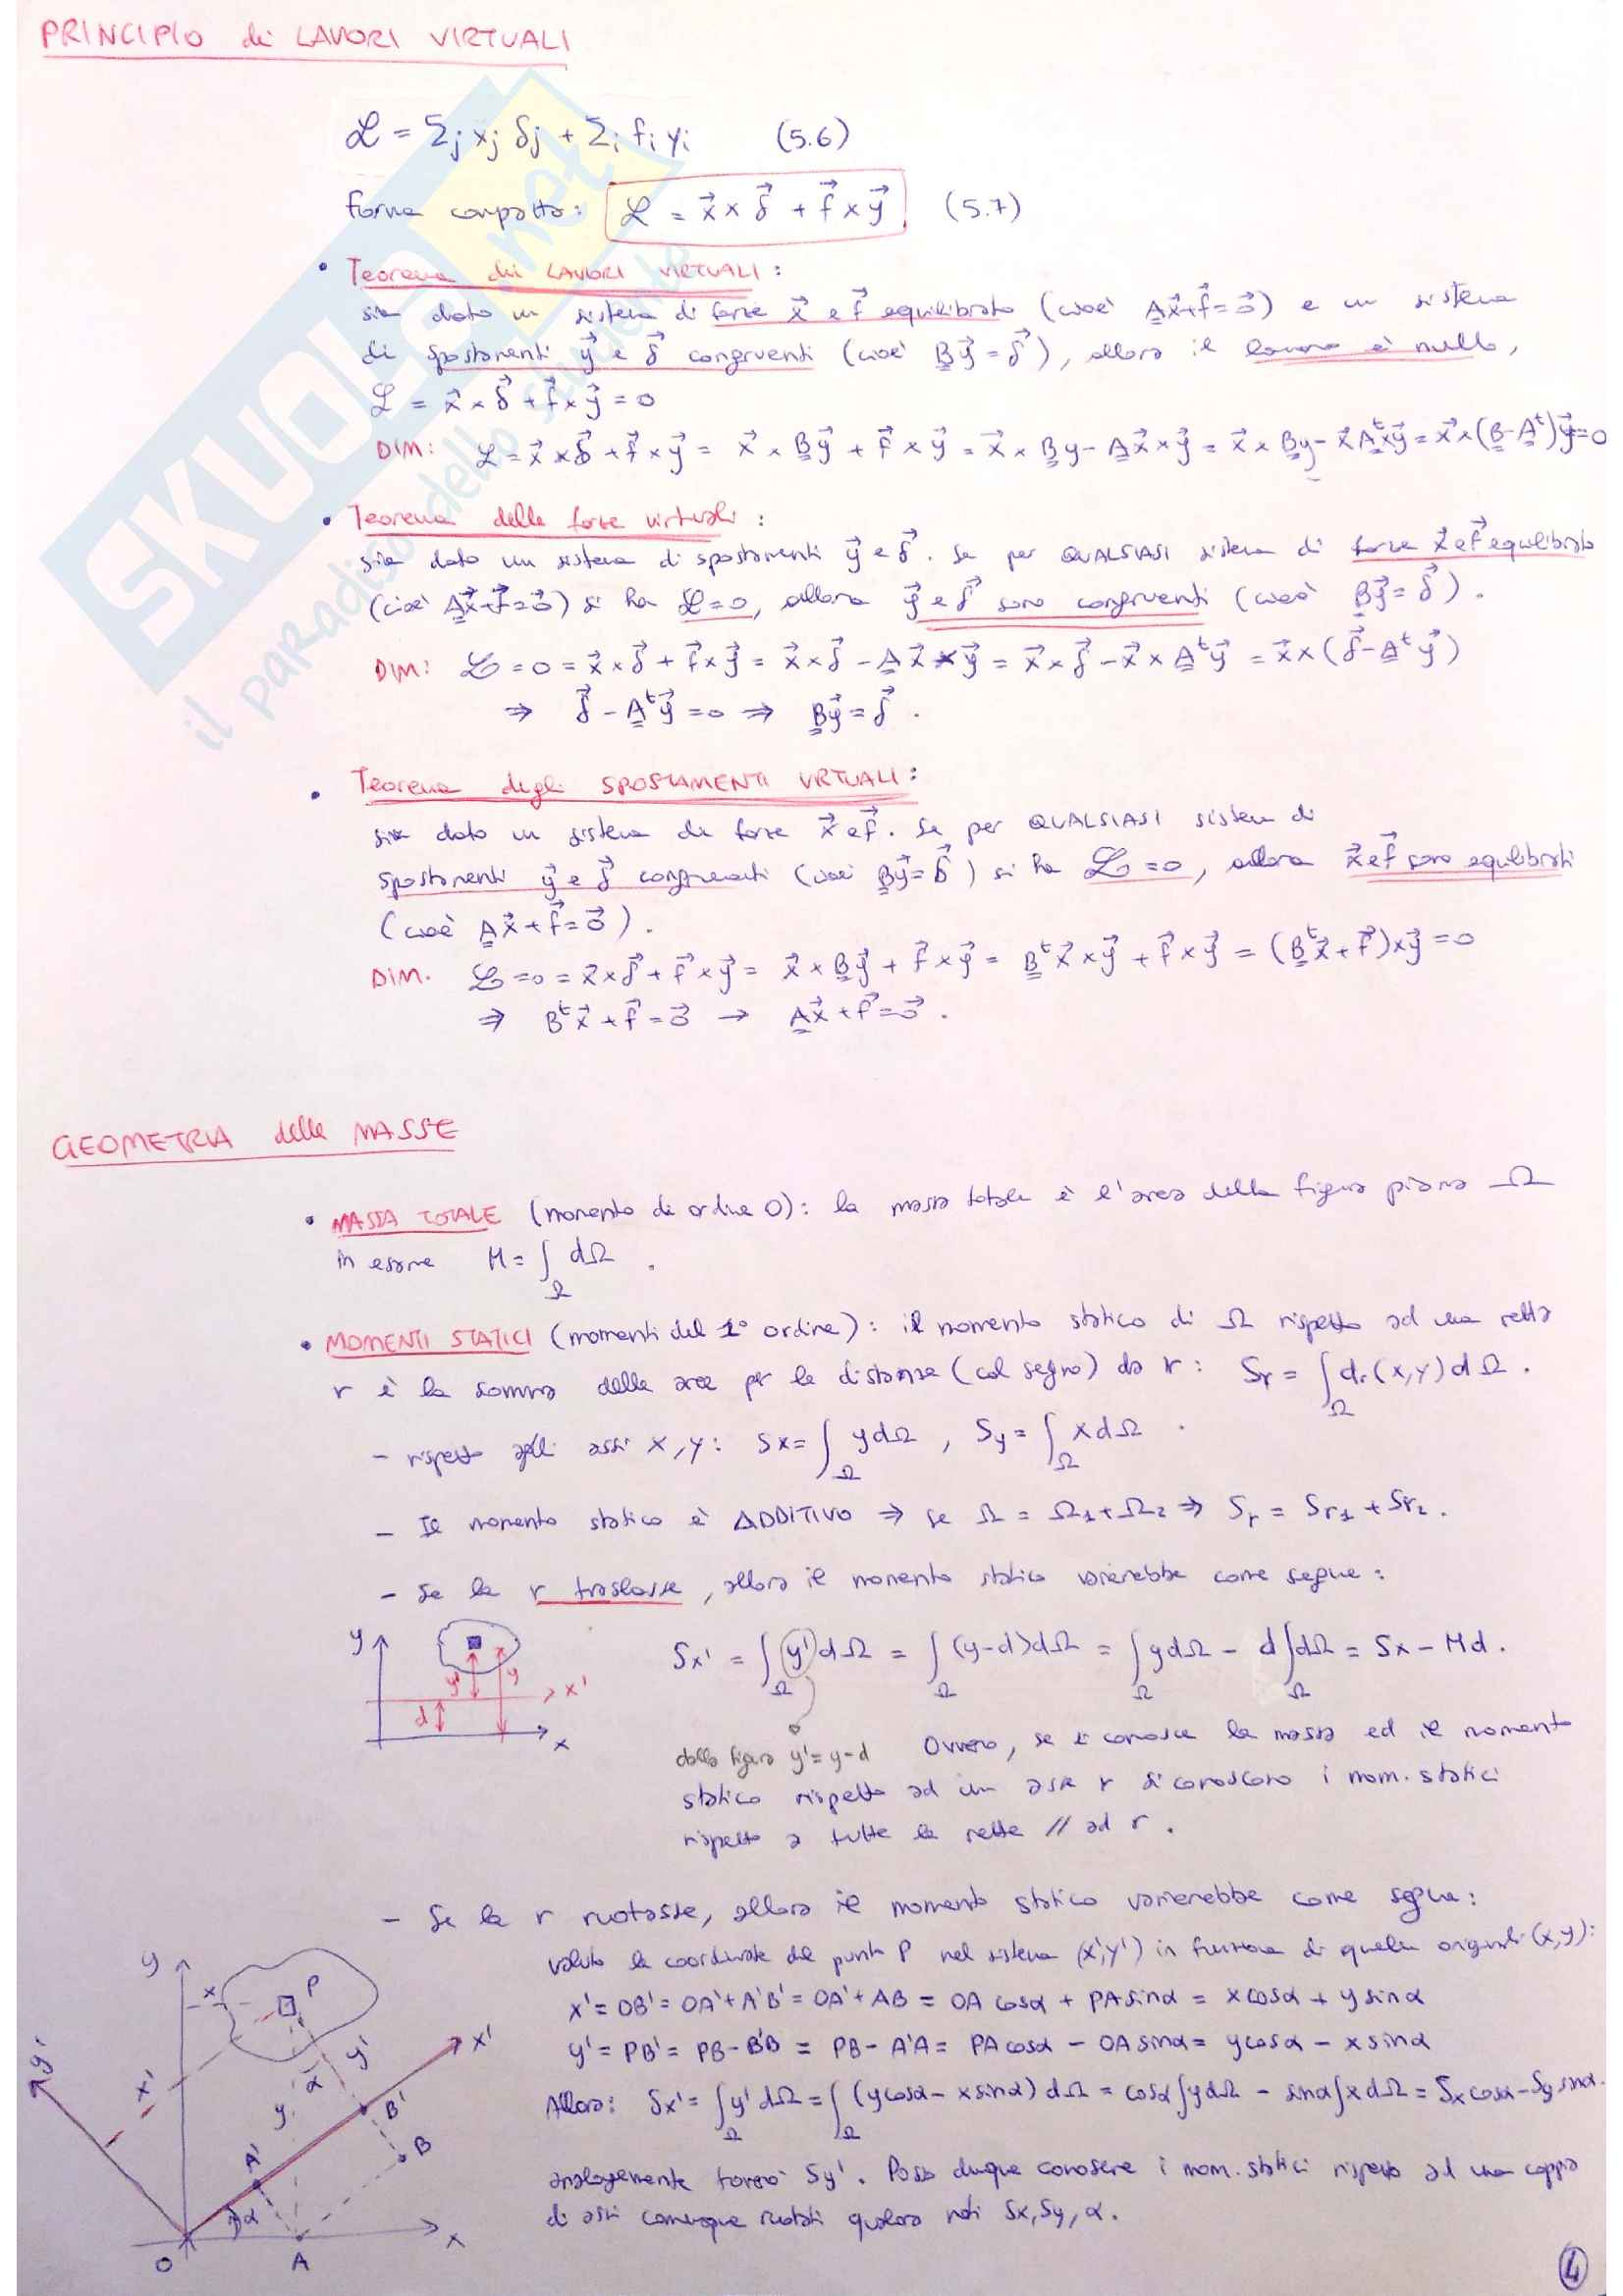 PRINCIPIO dei LAVORI VIRTUALI
ℒ = Σj xj δj + Σi fi yi (5.6)
forma compatta: ℒ = x⃗ × δ⃗ + f⃗ × y⃗ (5.7)
• Teorema dei LAVORI VIRTUALI:
sia dato un sistema di forze x⃗ e f⃗ equilibrato (cioè Ax⃗+f⃗=0⃗) e un sistema
di spostamenti y⃗ e δ⃗ congruenti (cioè By⃗=δ⃗), allora il lavoro è nullo,
ℒ = x⃗ × δ⃗ + f⃗ × y⃗ = 0
DIM: ℒ = x⃗ × δ⃗ + f⃗ × y⃗ = x⃗ × By⃗ + f⃗ × y⃗ = x⃗ × By - Ax⃗ × y⃗ = x⃗ × By - x⃗Aᵗ×y⃗ = x⃗ × (B-Aᵗ)y⃗=0
• Teorema delle forze virtuali:
sia dato un sistema di spostamenti y⃗ e δ⃗. Se per QUALSIASI sistema di forze x⃗ e f⃗ equilibrato
(cioè Ax⃗+f⃗=0⃗) si ha ℒ=0, allora y⃗ e δ⃗ sono congruenti (cioè By⃗=δ⃗).
DIM: ℒ = 0 = x⃗×δ⃗ + f⃗×y⃗ = x⃗×δ⃗ - Ax⃗×y⃗ = x⃗×δ⃗ - x⃗×Aᵗy⃗ = x⃗×(δ⃗-Aᵗy⃗)
⇒ δ⃗ - Aᵗy⃗ = 0 ⇒ By⃗ = δ⃗.
• Teorema degli SPOSTAMENTI VIRTUALI:
sia dato un sistema di forze x⃗ e f⃗. Se per QUALSIASI sistema di
spostamenti y⃗ e δ⃗ congruenti (cioè By⃗=δ⃗) si ha ℒ=0, allora x⃗ e f⃗ sono equilibrati
(cioè Ax⃗+f⃗=0⃗).
DIM. ℒ=0 = x⃗×δ⃗ + f⃗×y⃗ = x⃗×By⃗ + f⃗×y⃗ = Bᵗx⃗×y⃗ + f⃗×y⃗ = (Bᵗx⃗+f⃗)×y⃗=0
⇒ Bᵗx⃗+f⃗=0⃗ → Ax⃗+f⃗=0⃗.
GEOMETRIA delle MASSE
• MASSA TOTALE (momento di ordine 0): la massa totale è l'area della figura piana Ω
in esame M = ∫Ω dΩ.
• MOMENTI STATICI (momenti del 1° ordine): il momento statico di Ω rispetto ad una retta
r è la somma delle aree per le distanze (col segno) da r: Sr = ∫Ω dr(x,y)dΩ.
- rispetto agli assi x,y: Sx = ∫Ω ydΩ, Sy = ∫Ω xdΩ.
- Il momento statico è ADDITIVO ⇒ se Ω = Ω1+Ω2 ⇒ Sr = Sr1 + Sr2.
- Se la r traslasse, allora il momento statico varierebbe come segue:
y
y'
y
x'
d
x
Sx' = ∫Ω y'dΩ = ∫Ω (y-d)dΩ = ∫Ω ydΩ - d∫Ω dΩ = Sx - Md.
dalla figura y'=y-d Ovvero, se si conosce la massa ed il momento
statico rispetto ad un asse r si conoscono i mom. statici
rispetto a tutte le rette // ad r.
- Se la r ruotasse, allora il momento statico varierebbe come segue:
valuto le coordinate del punto P nel sistema (x',y') in funzione di quelle originali (x,y):
x' = OB' = OA'+A'B' = OA'+AB = OA cosα + PA sinα = x cosα + y sinα
y' = PB' = PB-B'B = PB-A'A = PA cosα - OA sinα = y cosα - x sinα
Allora: Sx' = ∫Ω y'dΩ = ∫Ω (ycosα - xsinα)dΩ = cosα∫ydΩ - sinα∫xdΩ = Sx cosα - Sy sinα.
analogamente troverò Sy'. Posso dunque conoscere i mom. statici rispetto ad una coppia
di assi comunque ruotati qualora noti Sx, Sy, α.
y
x
P
y'
x'
x'
α
y'
y
B'
A'
B
α
O
A
x
4
SKUOLA.net
il paradiso dello studente